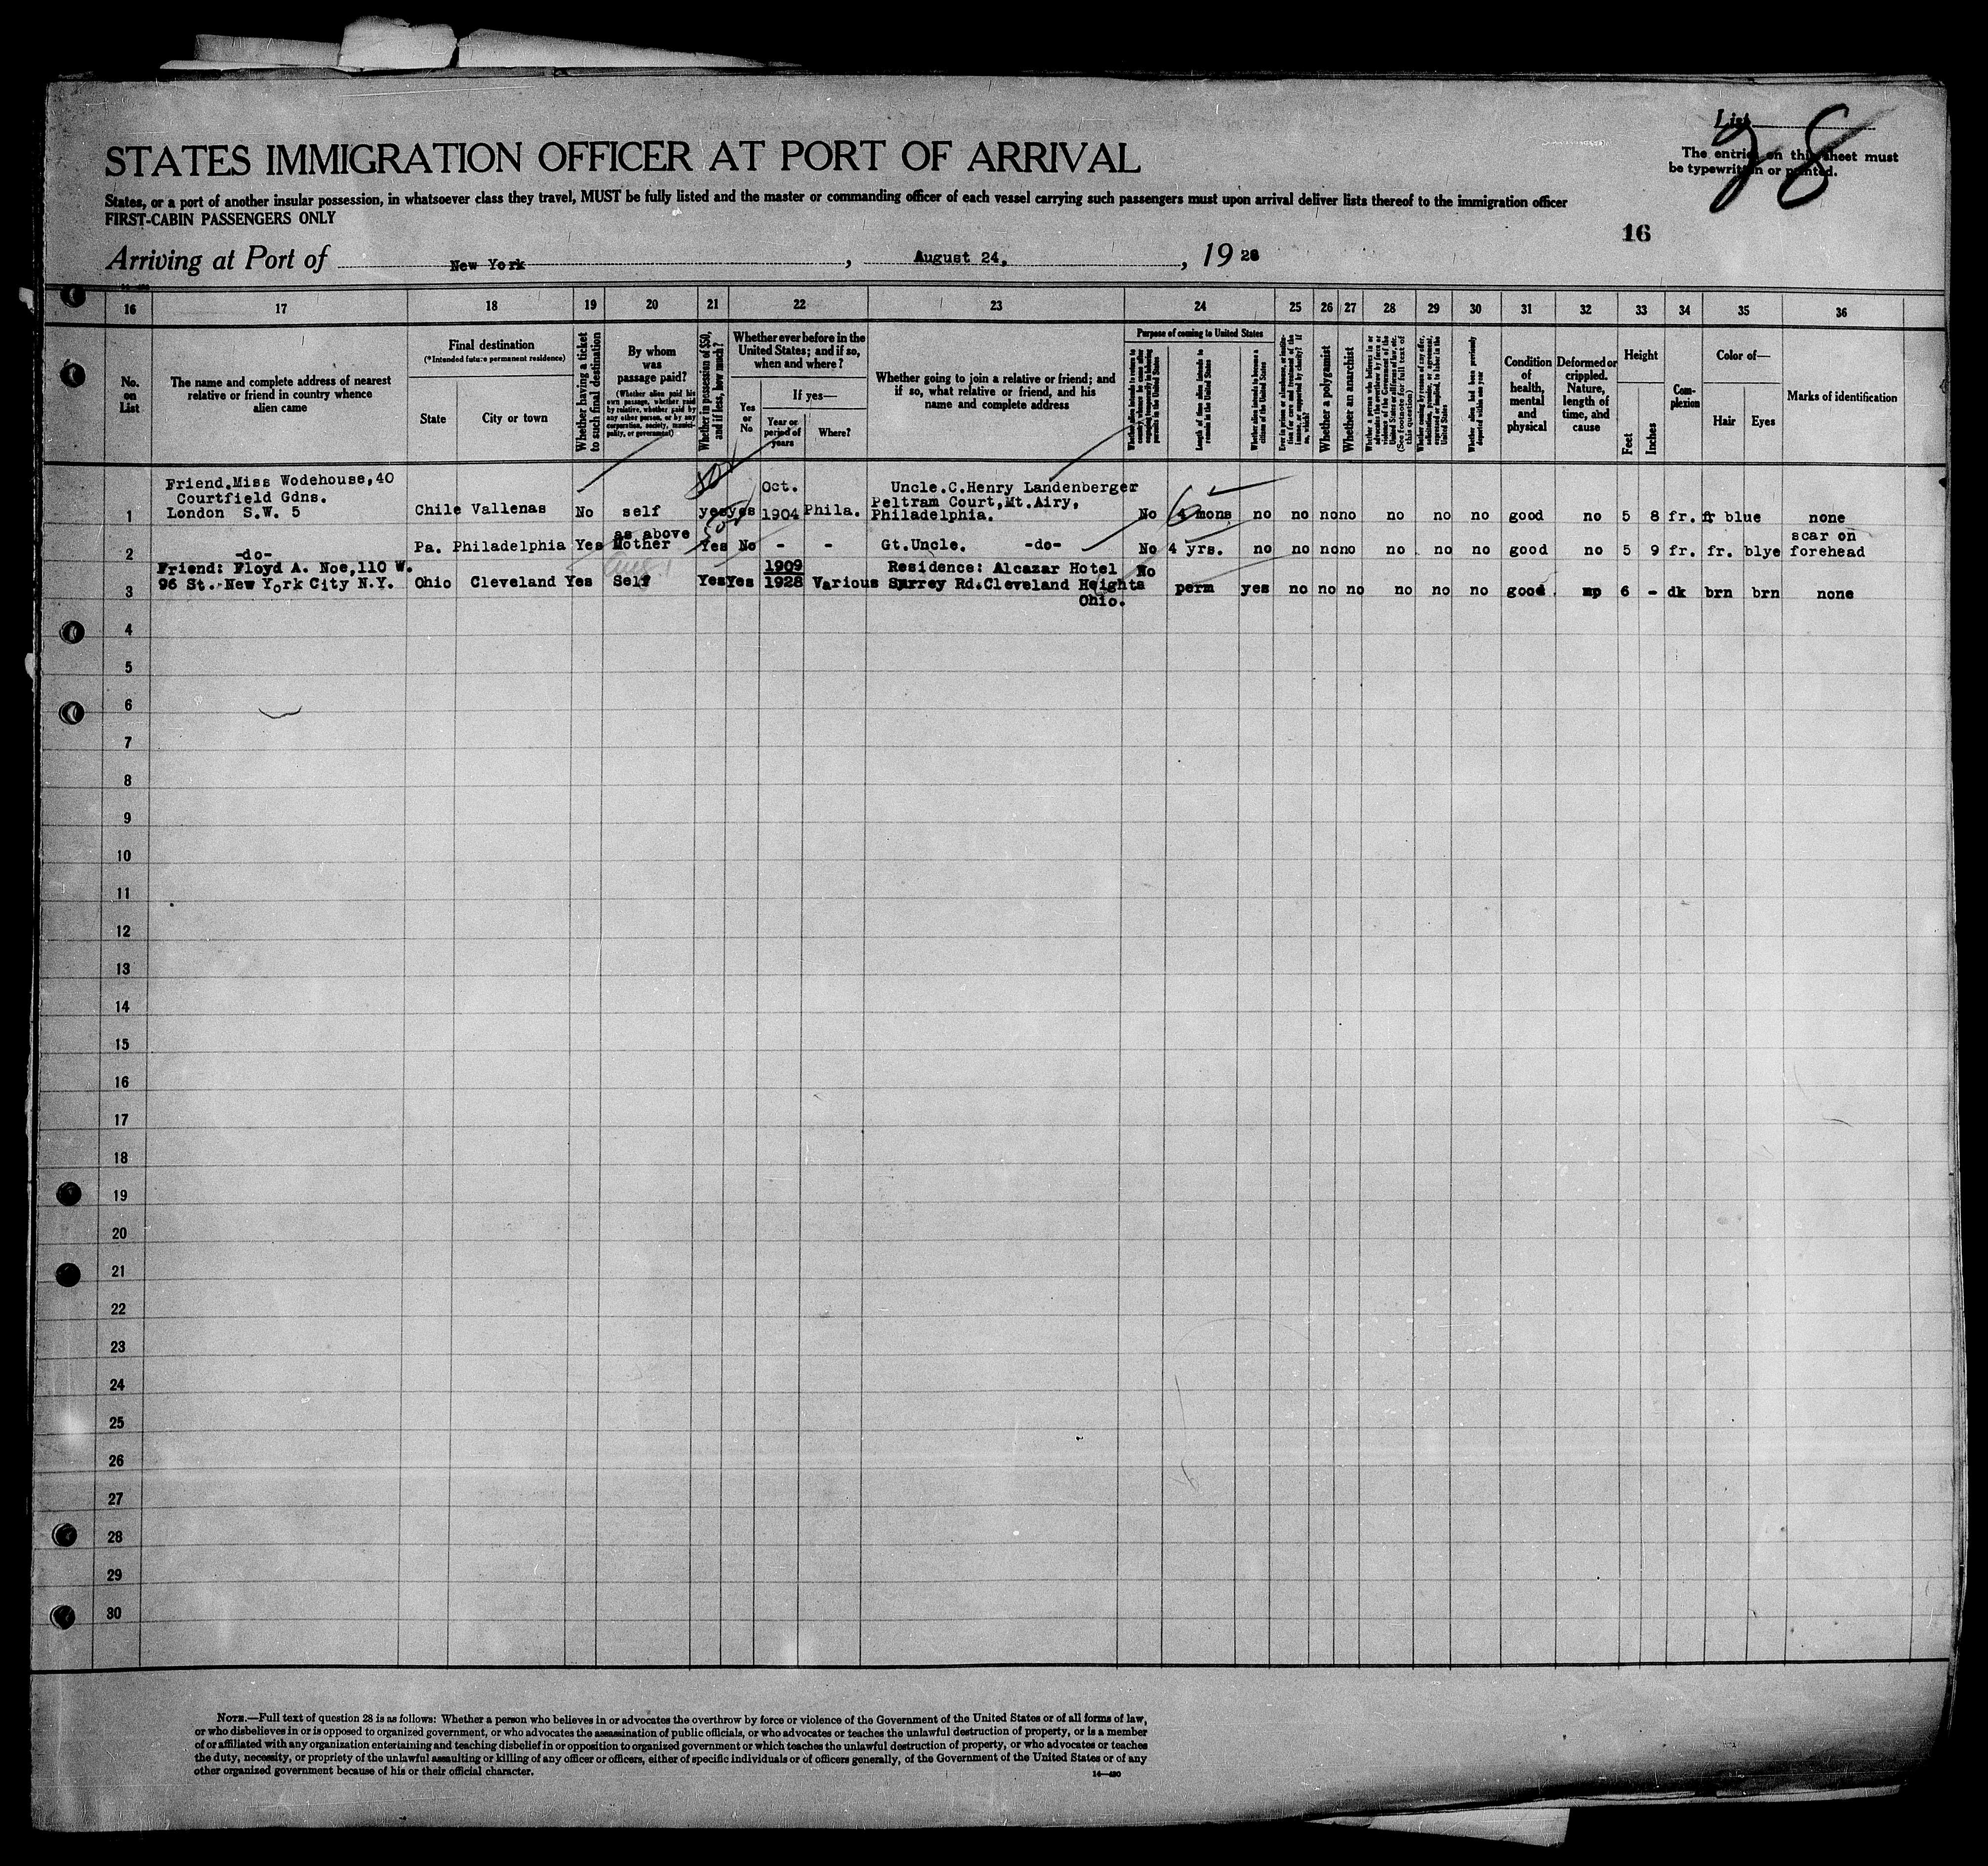 List
98
The entries on this sheet must
be typewritten or printed.
STATES IMMIGRATION OFFICER AT PORT OF ARRIVAL
States, or a port of another insular possession, in whatsoever class they travel, MUST be fully listed and the master or commanding officer of each vessel carrying such passengers must upon arrival deliver lists thereof to the immigration officer
FIRST-CABIN PASSENGERS ONLY
16
Arriving at Port of New York, August 24, , 1928
16 17 18 19 20 21 22 23 24 25 26 27 28 29 30 31 32 33 34 35 36
No.
on
List
The name and complete address of nearest
relative or friend in country whence
alien came
Final destination
(*Intended future permanent residence)
State
City or town
Whether having a ticket
to such final destination
By whom
was
passage paid?
(Whether alien paid his
own passage, whether paid
by relative, whether paid by
any other person, or by any
corporation, society, munici-
pality, or government)
Whether in possession of $50,
and if less, how much?
Whether ever before in the
United States; and if so,
when and where?
Yes
or
No
If yes—
Year or
period of
years
Where?
Whether going to join a relative or friend; and
if so, what relative or friend, and his
name and complete address
Purpose of coming to United States
Length of time alien intends to
remain in the United States
Whether alien intends to become a
citizen of the United States
Whether a polygamist
Whether an anarchist
Condition
of
health,
mental
and
physical
Deformed or
crippled.
Nature,
length of
time, and
cause
Height
Feet
Inches
Com-
plexion
Color of—
Hair
Eyes
Marks of identification
Friend.Miss Wodehouse,40
Courtfield Gdns.
London S.W. 5
1 Chile Vallenas No self yes yes Oct.
1904 Phila.
Uncle.C.Henry Landenberger
Peltram Court,Mt.Airy,
Philadelphia.
No 6 mons no no no no no no no good no 5 8 fr. fr blue none
2 -do- Pa. Philadelphia Yes as above
Mother Yes No - - Gt.Uncle. -do- No 4 yrs. no no no no no no no good no 5 9 fr. fr. blye scar on
forehead
Friend: Floyd A. Noe,110 W.
96 St. New York City N.Y.
3 Ohio Cleveland Yes Self Yes Yes 1909
1928 Various
Residence: Alcazar Hotel
Surrey Rd.Cleveland Heights
Ohio.
No perm yes no no no no no no good 6 - dk brn brn none
4
5
6
7
8
9
10
11
12
13
14
15
16
17
18
19
20
21
22
23
24
25
26
27
28
29
30
NOTE.—Full text of question 28 is as follows: Whether a person who believes in or advocates the overthrow by force or violence of the Government of the United States or of all forms of law,
or who disbelieves in or is opposed to organized government, or who advocates the assassination of public officials, or who advocates or teaches the unlawful destruction of property, or is a member
of or affiliated with any organization entertaining and teaching disbelief in or opposition to organized government or which teaches the unlawful destruction of property, or who advocates or teaches
the duty, necessity, or propriety of the unlawful assaulting or killing of any officer or officers, either of specific individuals or of officers generally, of the Government of the United States or of any
other organized government because of his or their official character.
14—480